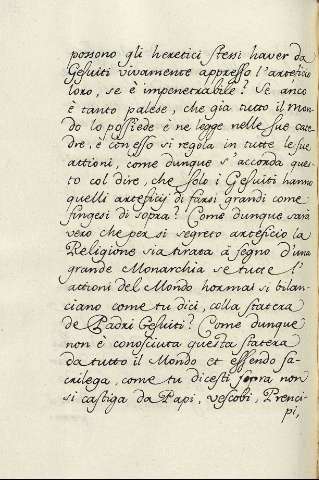 possono gli heretici stessi haver da
Gesuiti vivamente appresso l'artificio
loro, se è impenetrabile? Se anco
è tanto palese, che già tutto il Mon
do lo possiede è ne legge nelle sue cate
dre, è con esso si regola in tutte le sue
attioni, come dunque s'accorda ques
to col dire, che solo i Gesuiti hanno
quelli artificij di farsi grandi come
fingesi di sopra? Come dunque sarà
vero che per si segreto arteficio la
Religione sia tirata à segno d'una
grande Monarchia se tutte l'
attioni del Mondo hormai si bilan
ciano come tu dici, colla statera
de Padri Gesuiti? Come dunque
non è conosciuta questa statera
da tutto il Mondo et essendo sa
crilega, come tu dicesti sopra non
si castiga da Papi, Vescobi, Prenci
pi,